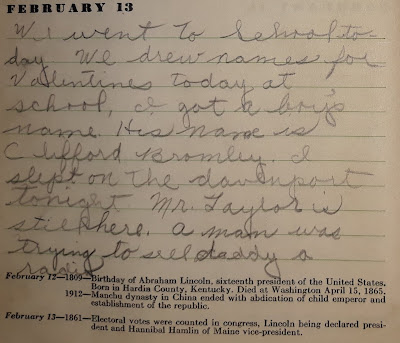 FEBRUARY 13
We went to School to-
day. We drew names for
Valentines today at
school, I got a boy's
name. His name is
Clifford Bromley. I
slept on the davenport
tonight. Mr. Taylor is
still here. A man was
trying to sell daddy a
radio.
February 12—1809—Birthday of Abraham Lincoln, sixteenth president of the United States.
Born in Hardin County, Kentucky. Died at Washington April 15, 1865.
1912—Manchu dynasty in China ended with abdication of child emperor and
establishment of the republic.
February 13—1861—Electoral votes were counted in congress, Lincoln being declared presi-
dent and Hannibal Hamlin of Maine vice-president.